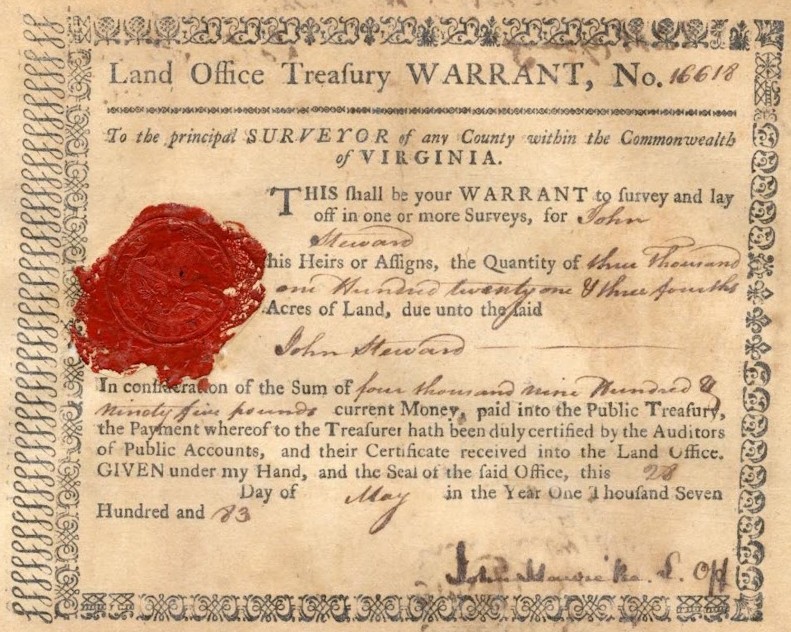 Land Office Treaſury WARRANT, No. 16618
To the principal SURVEYOR of any County within the Commonwealth
of VIRGINIA.
THIS ſhall be your WARRANT to ſurvey and lay
off in one or more Surveys, for John
Steward
his Heirs or Aſſigns, the Quantity of three Thousand
one Hundred twenty one & three fourths
Acres of Land, due unto the ſaid
John Steward
In conſideration of the Sum of four thousand nine Hundred &
ninety five pounds current Money, paid into the Public Treaſury,
the Payment whereof to the Treaſurer hath been duly certified by the Auditors
of Public Accounts, and their Certificate received into the Land Office.
GIVEN under my Hand, and the Seal of the ſaid Office, this 28
Day of May in the Year One Thouſand Seven
Hundred and 83
John L. Off